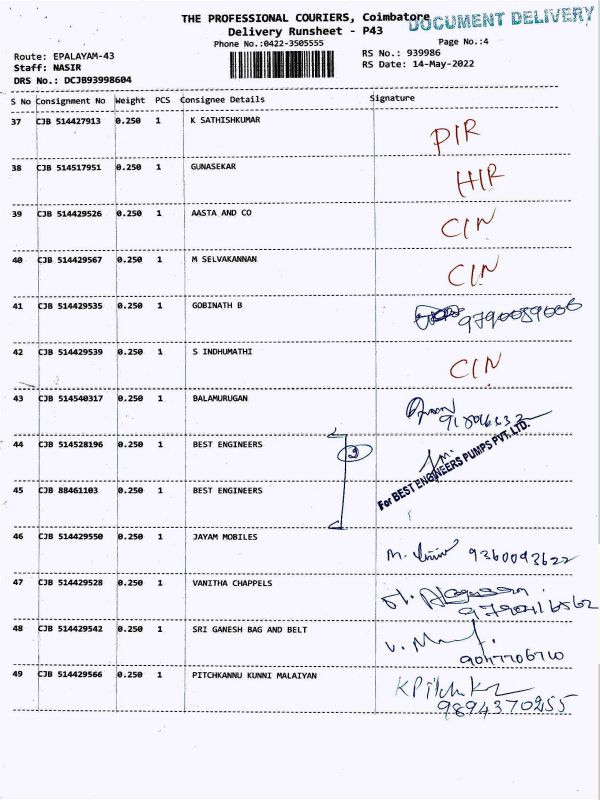 THE PROFESSIONAL COURIERS, Coimbatore
DOCUMENT DELIVERY
Delivery Runsheet - P43
Phone No.:0422-3505555
Page No.:4
Route: EPALAYAM-43
RS No.: 939986
Staff: NASIR
RS Date: 14-May-2022
DRS No.: DCJB93998604
S No Consignment No Weight PCS Consignee Details Signature
37 CJB 514427913 0.250 1 K SATHISHKUMAR PIR
38 CJB 514517951 0.250 1 GUNASEKAR HIR
39 CJB 514429526 0.250 1 AASTA AND CO CIN
40 CJB 514429567 0.250 1 M SELVAKANNAN CIN
41 CJB 514429535 0.250 1 GOBINATH B
42 CJB 514429539 0.250 1 S INDHUMATHI CIN
43 CJB 514540317 0.250 1 BALAMURUGAN
44 CJB 514528196 0.250 1 BEST ENGINEERS
For BEST ENGINEERS PUMPS PVT. LTD.
45 CJB 88461103 0.250 1 BEST ENGINEERS
46 CJB 514429550 0.250 1 JAYAM MOBILES 9360093622
47 CJB 514429528 0.250 1 VANITHA CHAPPELS
48 CJB 514429542 0.250 1 SRI GANESH BAG AND BELT
9047706710
49 CJB 514429566 0.250 1 PITCHKANNU KUNNI MALAIYAN
9894370255